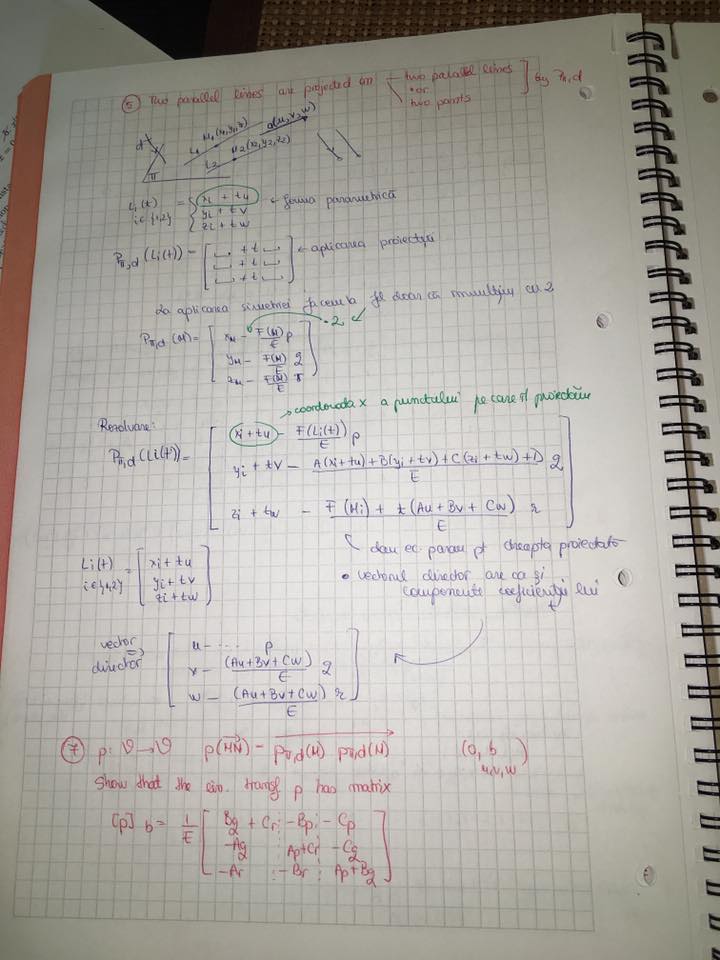 ⑤ Two parallel lines are projected on two parallel lines or two points by π,d
d
π
L1 M1(x1,y1,z1)
L2 M2(x2,y2,z2)
d(u,v,w)
Li(t) = { xi + tu ← forma parametrică
i∈{1,2} yi + tv
zi + tw
Pπ,d (Li(t)) = [ + t ← aplicarea proiecției
+ t
+ t ]
La aplicarea simetriei facem la fel doar că înmulțim cu 2
Pπ,d (M) = [ xM - F(M)/E p · 2
yM - F(M)/E q
zM - F(M)/E r ]
Rezolvare:
→ coordonata x a punctului pe care îl proiectăm
Pπ,d (Li(t)) = [ xi + tu - F(Li(t))/E p
yi + tv - A(xi+tu)+B(yi+tv)+C(zi+tw)+D/E q
zi + tw - F(Mi) + t(Au+Bv+Cw)/E r ]
dau ec. param pt dreapta proiectată
Li(t) = [ xi + tu
i∈{1,2} yi + tv
zi + tw ]
• vectorul director are ca și
componente coeficienții lui
t
vector
director
⇒ [ u - ... p
v - (Au+Bv+Cw)/E q
w - (Au+Bv+Cw)/E r ]
⑦ p: V→V p(MN) = pπ,d(M) pπ,d(N) (O, b
u,v,w)
Show that the lin. transf p has matrix
[p] b = 1/E [ Bq + Cr ; -Bp ; -Cp
-Aq ; Ap+Cr ; -Cq
-Ar ; -Br ; Ap+Bq ]